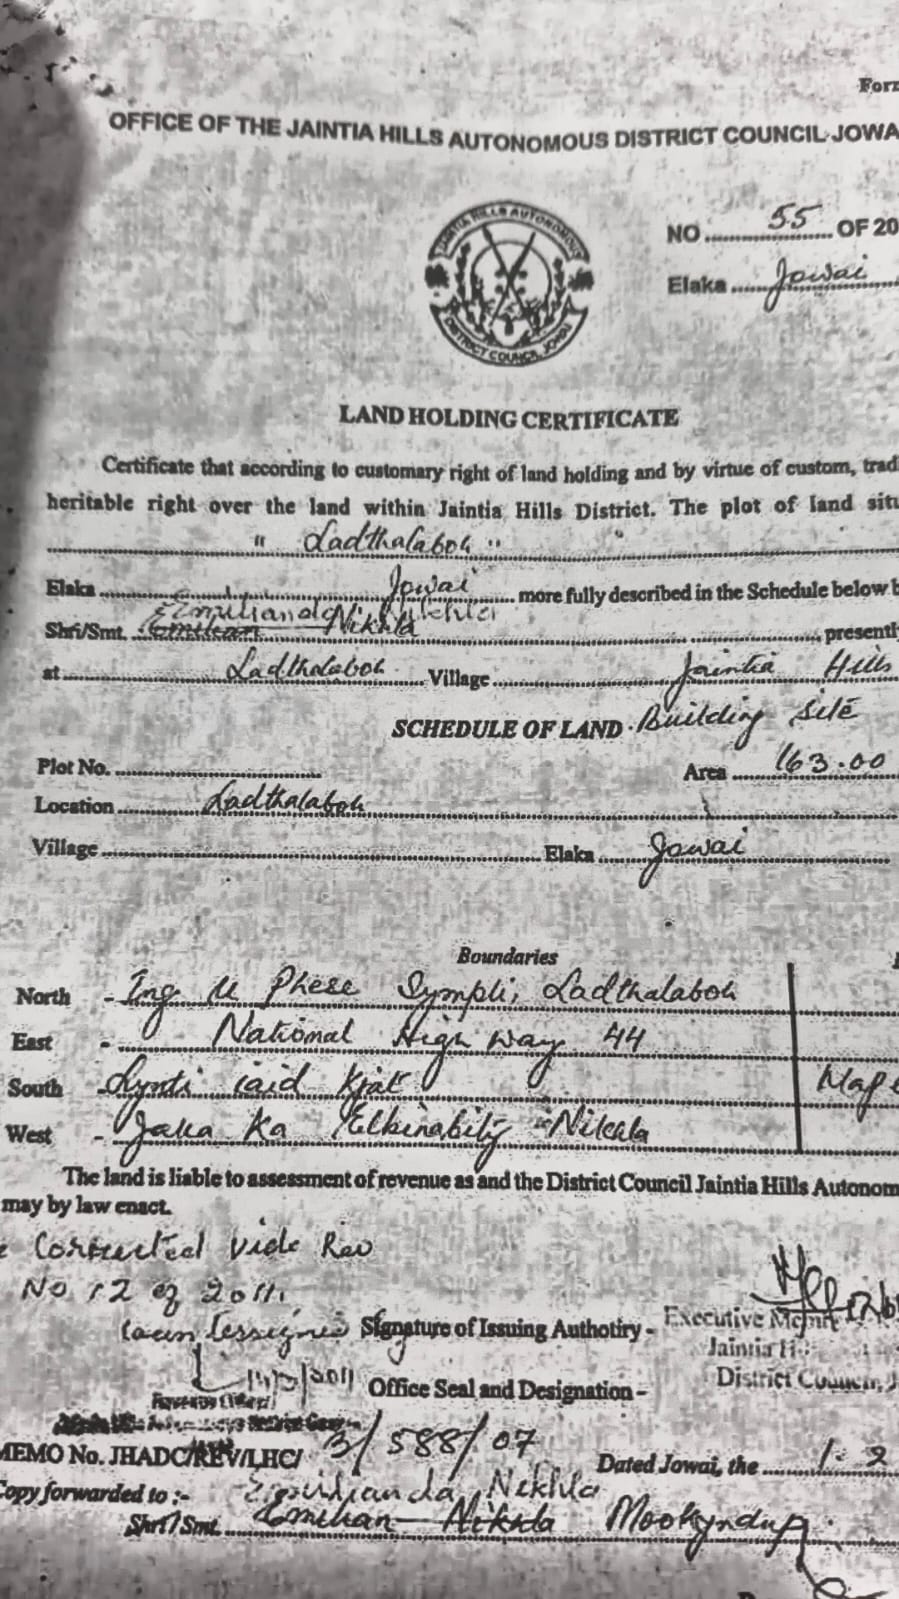 Form
OFFICE OF THE JAINTIA HILLS AUTONOMOUS DISTRICT COUNCIL JOWA
JAINTIA HILLS AUTONOMOUS
DISTRICT COUNCIL, JOWAI
NO 55 OF 20
Elaka Jowai
LAND HOLDING CERTIFICATE
Certificate that according to customary right of land holding and by virtue of custom, trad
heritable right over the land within Jaintia Hills District. The plot of land situ
" Ladthalaboh "
Elaka Jowai more fully described in the Schedule below b
Emilianda Nikhla
Shri/Smt. Emilian Nikhla presentl
at Ladthalaboh Village Jaintia Hills
SCHEDULE OF LAND Building Site
Plot No. Area 163.00
Location Ladthalaboh
Village Elaka Jowai
Boundaries
North - Ing U Phese Sympli, Ladthalaboh
East - National High way 44
South Lynti iaid Kjat Map
West - Jaka Ka Elbinability Nikhla
The land is liable to assessment of revenue as and the District Council Jaintia Hills Autonom
may by law enact.
Corrected vide Rev
No 12 of 2011.
Countersigned Signature of Issuing Authotiry -
Executive Mem
Jaintia H
2011 Office Seal and Designation -
District Council, J
MEMO No. JHADC/REV/LHC/ 3/588/07 Dated Jowai, the 1. 2
Copy forwarded to :- Emilianda Nikhla
Shri / Smt. Emilian Nikhla Mookyndup